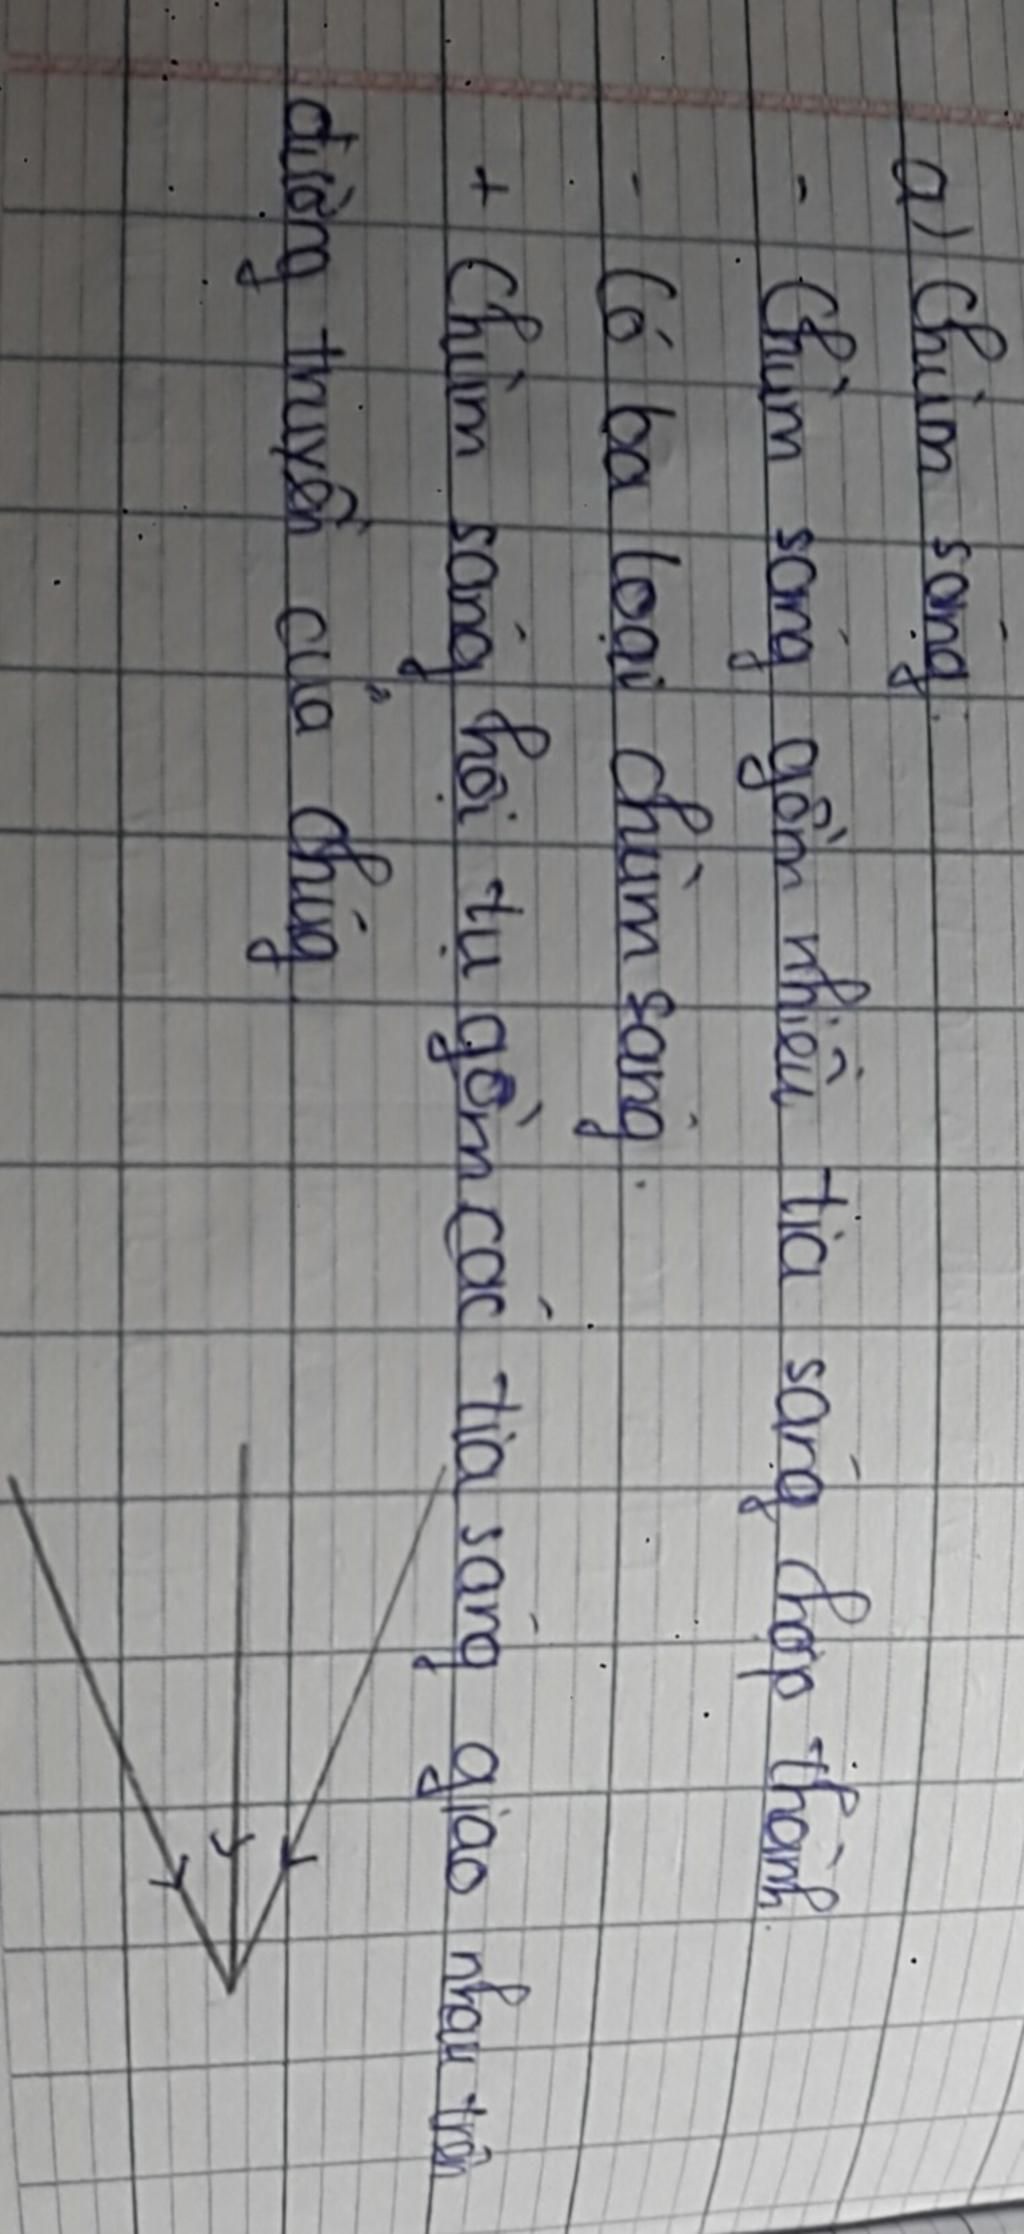 a) Chùm sáng.
- Chùm sáng gồm nhiều tia sáng hợp thành.
- Có ba loại chùm sáng.
+ Chùm sáng hội tụ gồm các tia sáng giao nhau trên
đường truyền của chúng.